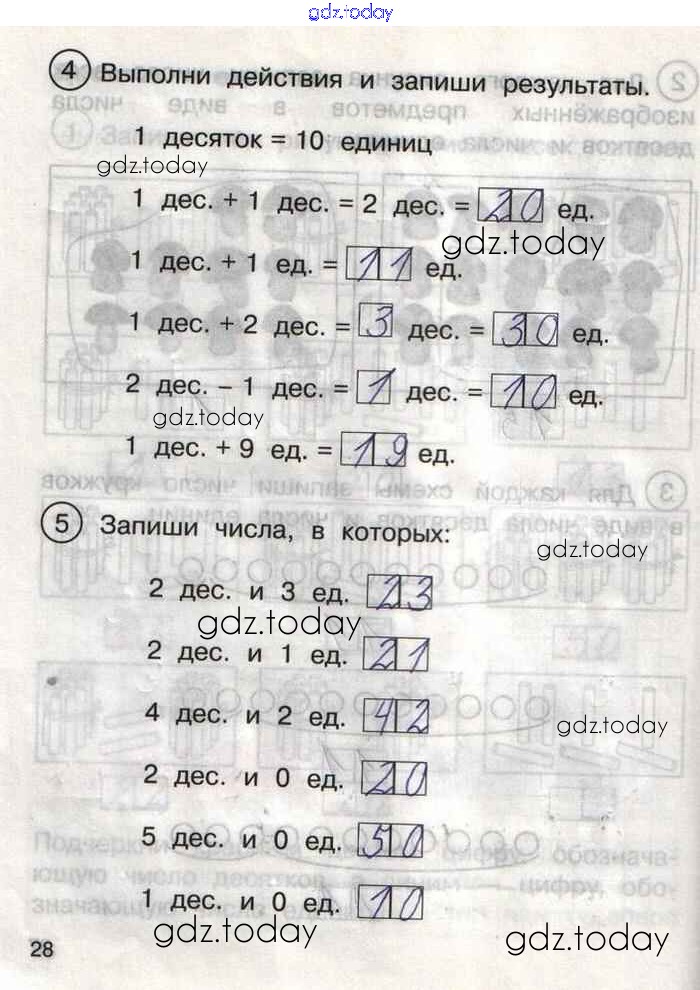 gdz.today
4 Выполни действия и запиши результаты.
1 десяток = 10 единиц
gdz.today
1 дес. + 1 дес. = 2 дес. = 20 ед.
gdz.today
1 дес. + 1 ед. = 11 ед.
1 дес. + 2 дес. = 3 дес. = 30 ед.
2 дес. – 1 дес. = 1 дес. = 10 ед.
gdz.today
1 дес. + 9 ед. = 19 ед.
5 Запиши числа, в которых:
gdz.today
2 дес. и 3 ед. 23
gdz.today
2 дес. и 1 ед. 21
4 дес. и 2 ед. 42
gdz.today
2 дес. и 0 ед. 20
5 дес. и 0 ед. 50
1 дес. и 0 ед. 10
gdz.today
gdz.today
28